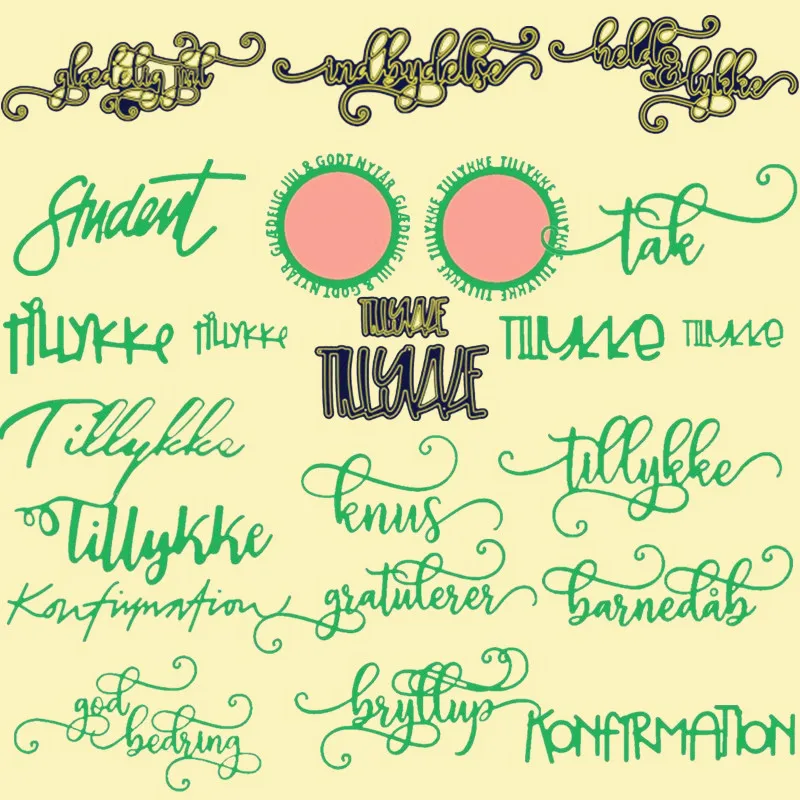 glædelig jul
indbydelse
held & lykke
Student
GLÆDELIG JUL & GODT NYTÅR GLÆDELIG JUL & GODT NYTÅR
TILLYKKE TILLYKKE TILLYKKE TILLYKKE TILLYKKE TILLYKKE
tak
TILLYKKE
TILLYKKE
TILLYKKE
TILLYKKE
TILLYKKE
TILLYKKE
Tillykke
Tillykke
knus
tillykke
Konfirmation
gratulerer
barnedåb
god
bedring
bryllup
KONFIRMATION